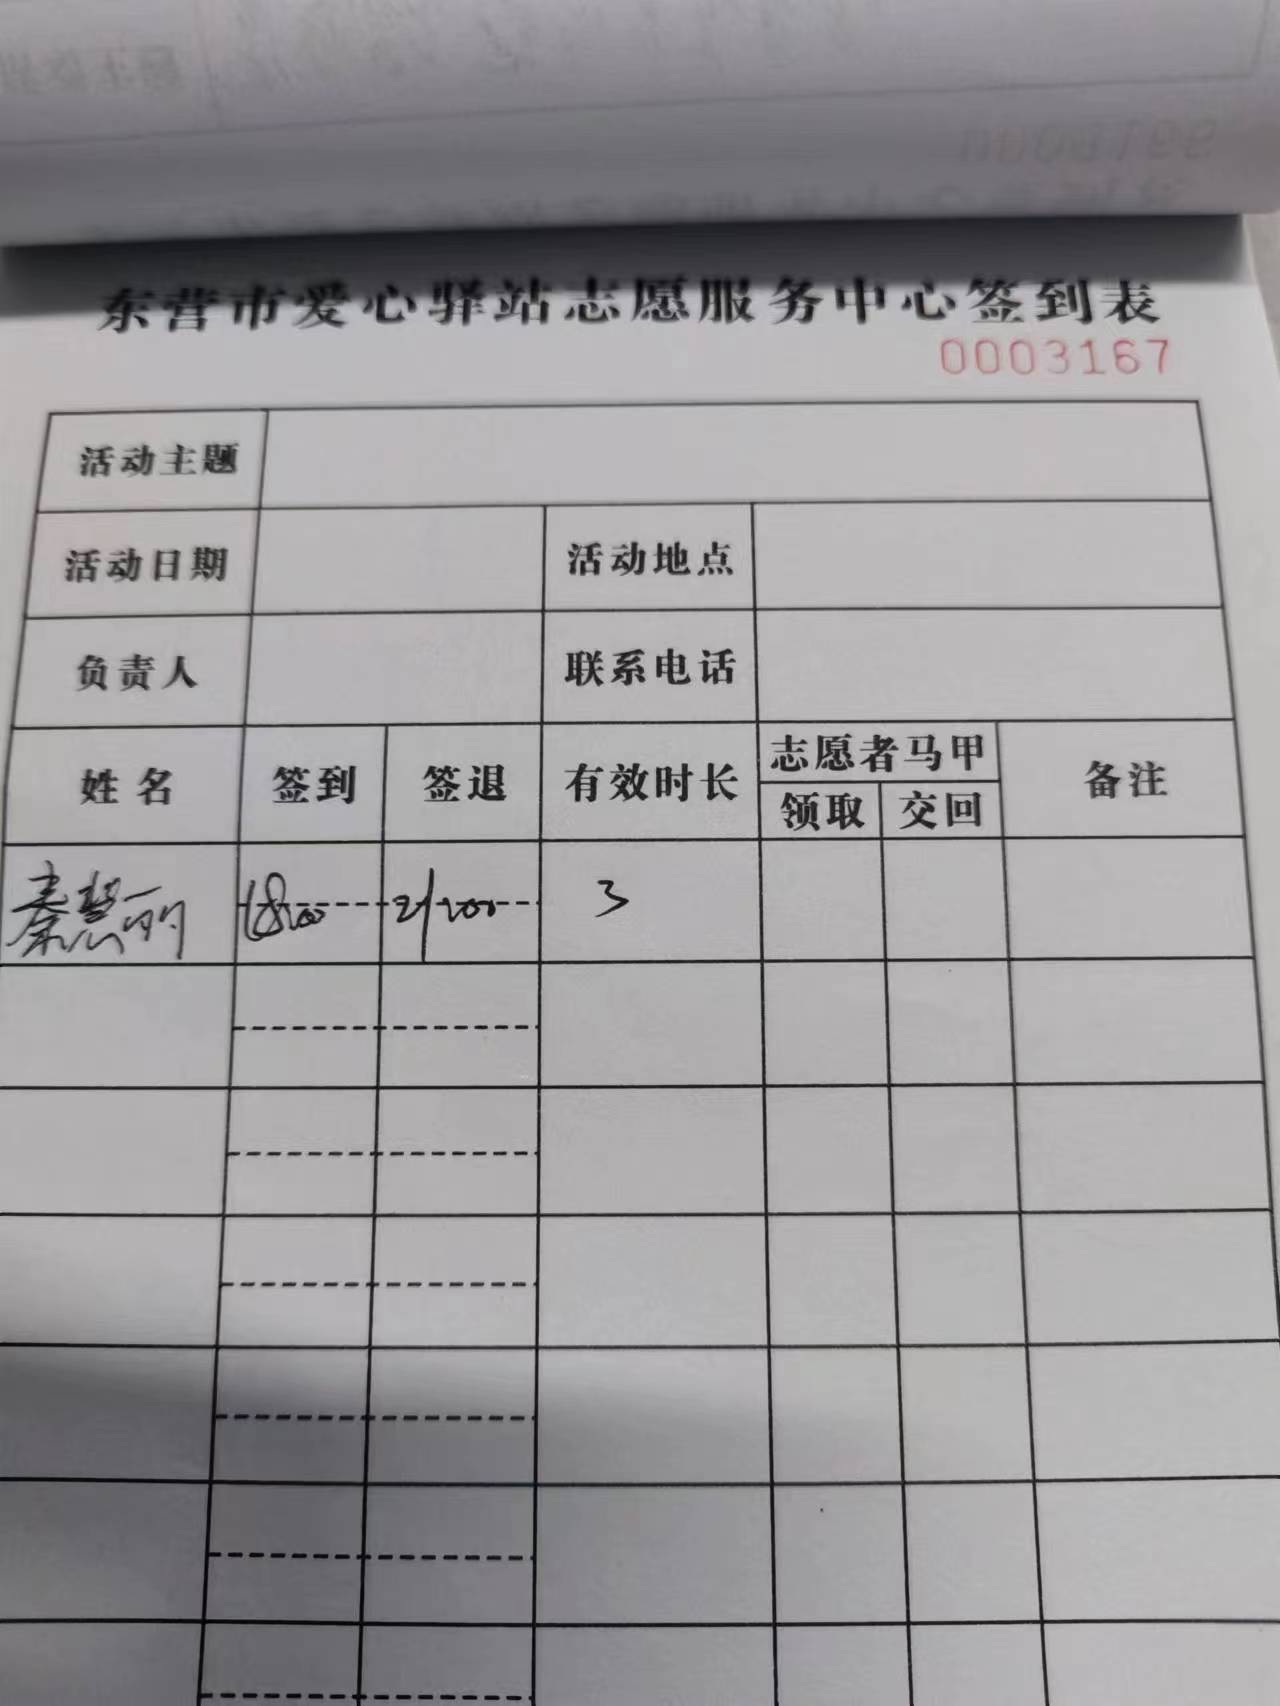 东营市爱心驿站志愿服务中心签到表
0003167
活动主题
活动日期 活动地点
负责人 联系电话
姓名 签到 签退 有效时长 志愿者马甲 备注
领取 交回
秦慧丽 18:00 21:00 3